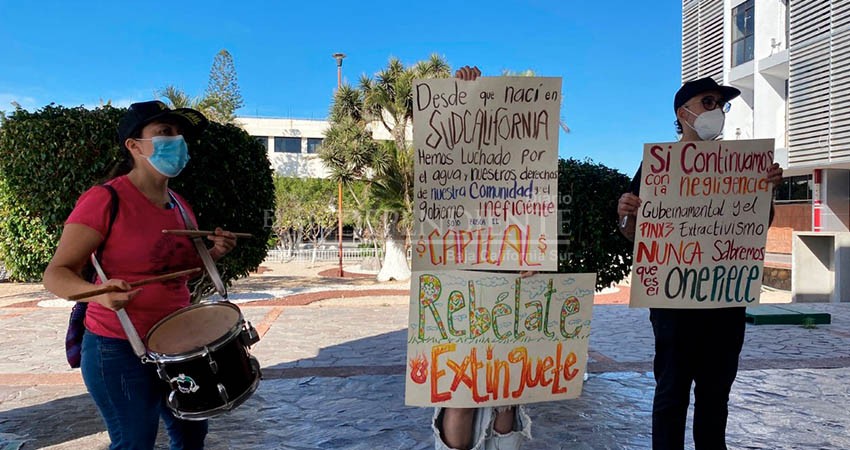 Desde que nací en
SUDCALIFORNIA
Hemos Luchado por
el agua y nuestros derechos
de nuestra Comunidad y el
Gobierno ineficiente
solo busca el
$ CAPITAL $
Rebélate
o
Extínguete
Si Continuamos
con la negligencia
Gubernamental y el
PINX3 Extractivismo
NUNCA Sabremos
que es el ONE PIECE
Baja California Sur